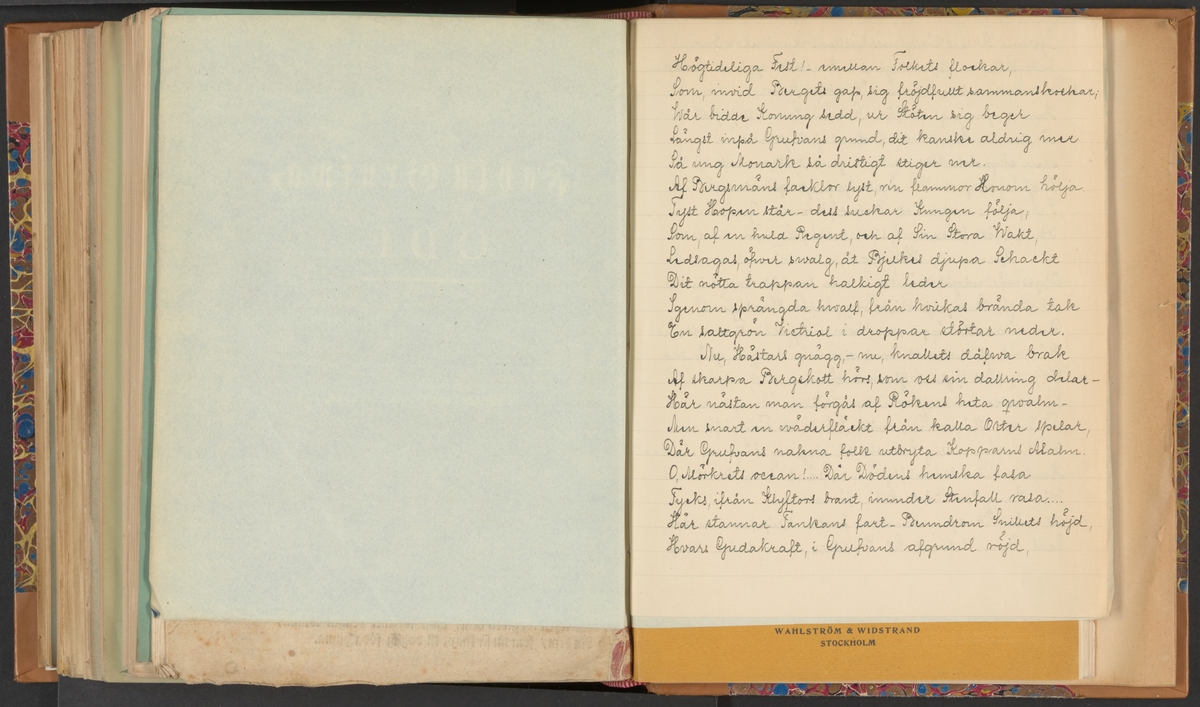 Högtideliga Fest! – emellan Folkets flockar,
Som, invid Bergets gap, sig fröjdfullt sammanskockar;
Wår bidde Konung sedd, ur Stöten sig beger
Längst inpå Grufvans grund, dit kanske aldrig mer
Så ung Monark så dristigt stiger ner.
Af Bergsmäns facklor lyst, rin flammor Honom hölja.
Tyst Hopen står – dess suckar Kungen följa,
Som, af en huld Regent, och af Sin Stora Wakt,
Ledsagas, öfver swalg, åt Bjelkes djupa Schackt
Dit nötta trappan halkigt leder
Igenom sprängda hwalf, från hvilkas brända tak
En saltgrön Victriol i droppar störtar neder.
Nu, Hästars gnägg, – nu, knallets dåfwa brak
Af skarpa Bergskott hörs, som oss sin dallring delar –
Här nästan man förgås af Rökens heta qvalm –
Men snart en wäderfläckt från kalla Orter spelar,
Där Grufvans nakna folk utbryta Kopparns Malm.
O, Mörkrets ocean!.... Där Dödens hemska fasa
Tycks, ifrån Klyftors brant, inunder Stenfall rasa....
Här stannar Tankans fart – Beundrom Snillets höjd,
Hvars Gudakraft, i Grufvans afgrund röjd,
WAHLSTRÖM & WIDSTRAND
STOCKHOLM